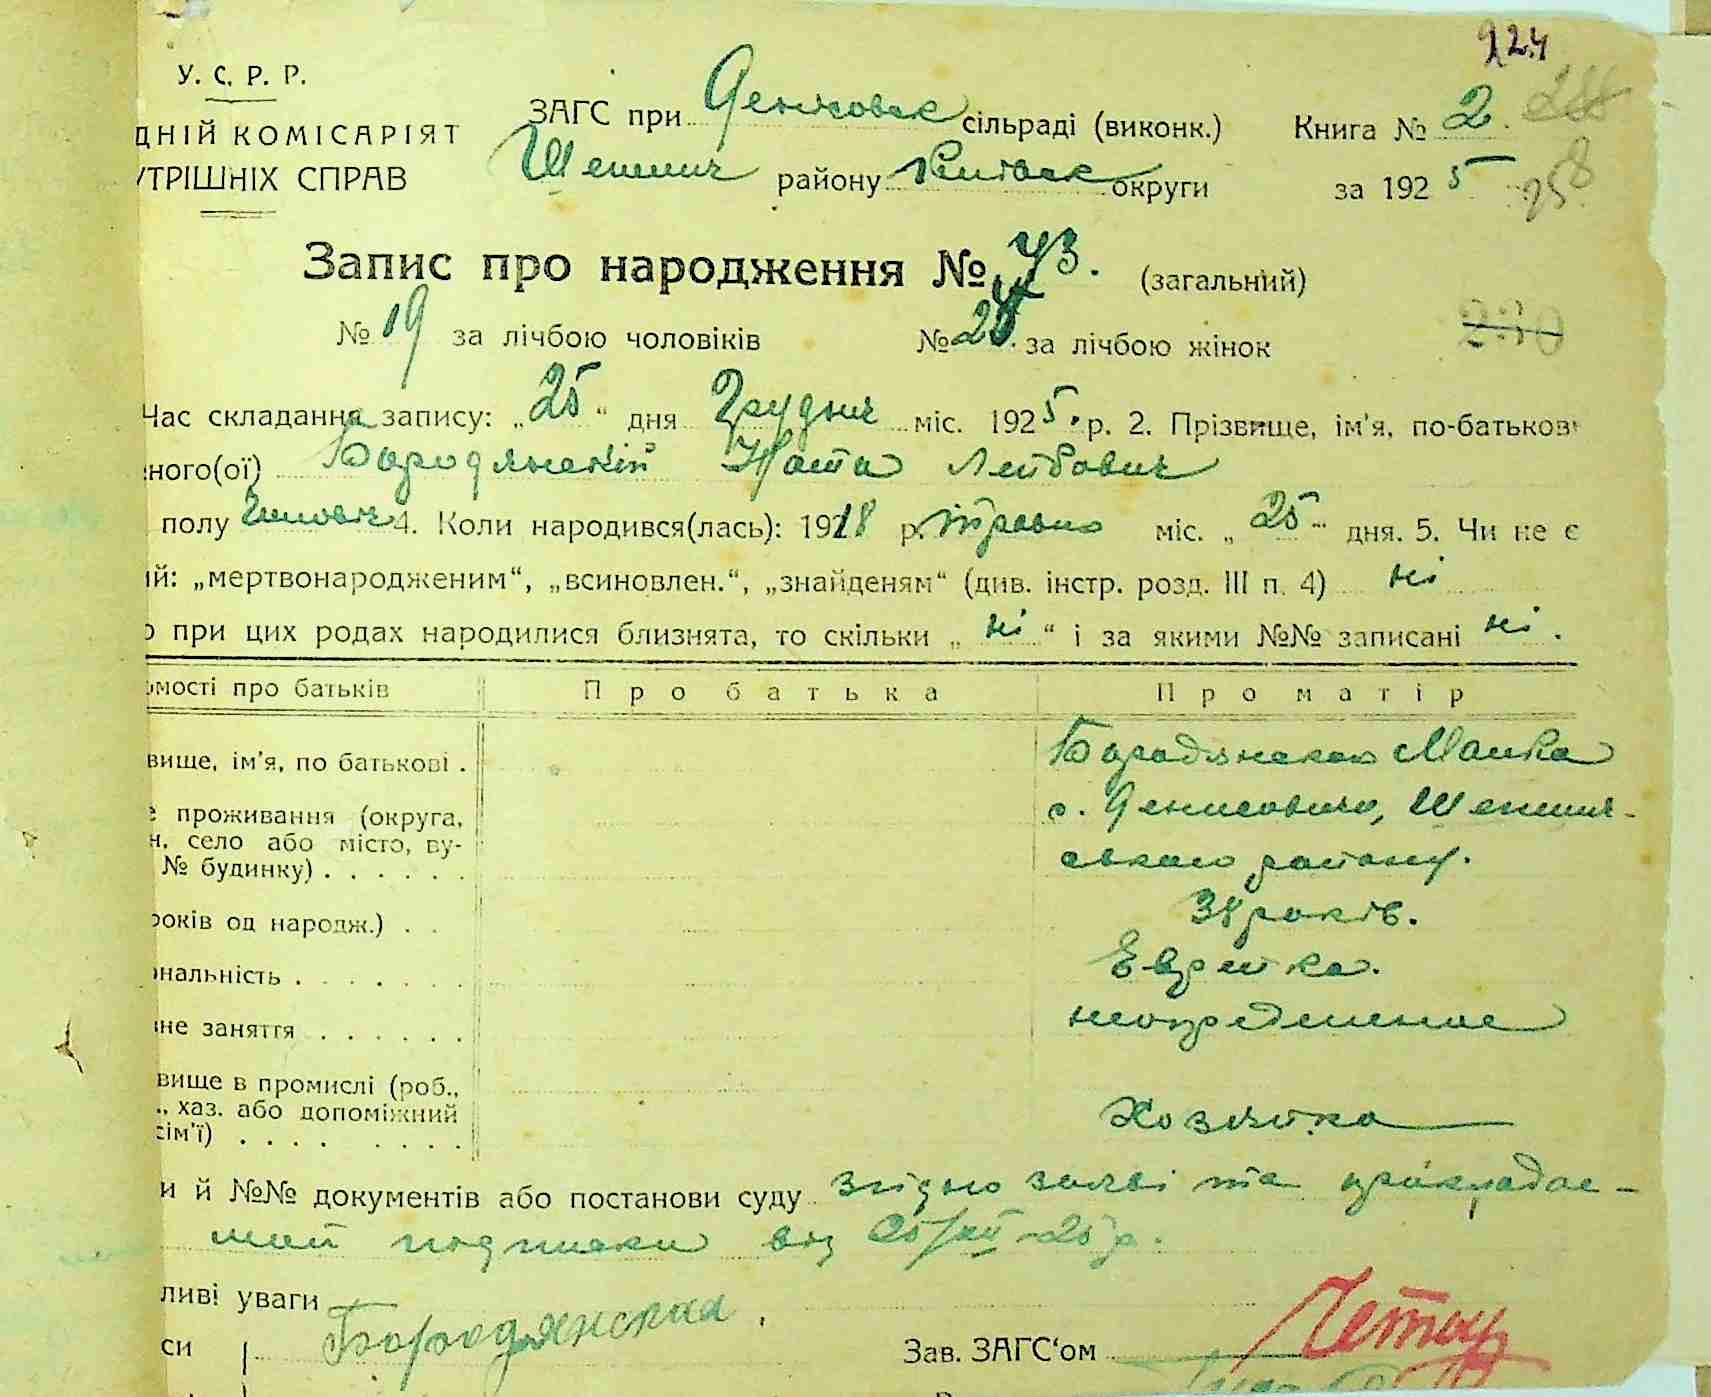 924
У. С. Р. Р.
ДНІЙ КОМІСАРІЯТ
УТРІШНІХ СПРАВ
ЗАГС при сільраді (виконк.) Книга № 2. 288
району округи за 1925 258
Запис про народження № 43. (загальний)
№ 19 за лічбою чоловіків № 24. за лічбою жінок 230
Час складання запису: „25“ дня Грудня міс. 1925. р. 2. Прізвище, ім'я, по-батькові
ного(ої) Бородянський Лейбович
полу 4. Коли народився(лась): 1918 р. травня міс. „25“ дня. 5. Чи не є
ий: „мертвонародженим“, „всиновлен.“, „знайденям“ (див. інстр. розд. III п. 4) ні
о при цих родах народилися близнята, то скільки „ні“ і за якими №№ записані ні.
омості про батьків Про батька Про матір
вище, ім'я, по батькові . Бородянская
е проживання (округа, с. Денисовичи, Шепелич-
н, село або місто, ву- ського району.
№ будинку) . . . . . .
років од народж.) . . 38 років.
ональність . . . . . . . Еврейка.
не заняття . . . . . . неопределенное
вище в промислі (роб.,
., хаз. або допоміжний Хозяйка
сім'ї) . . . . . . . .
и й №№ документів або постанови суду згідно заяві та прикладає-
мой подписки від 25/XII-25 р.
ливі уваги
си Бородянская. Зав. ЗАГС‘ом